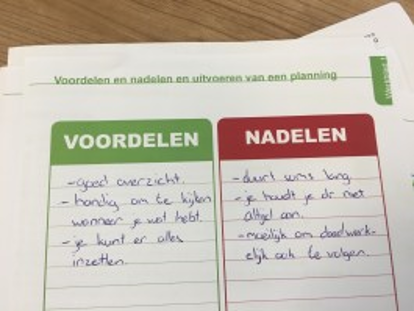 Voordelen en nadelen en uitvoeren van een planning
VOORDELEN
- goed overzicht.
- handig om te kijken
wanneer je wat hebt.
- je kunt er alles
inzetten.
NADELEN
- duurt soms lang
- je houdt je er niet
altijd aan.
- moeilijk om daadwerk-
elijk ook te volgen.